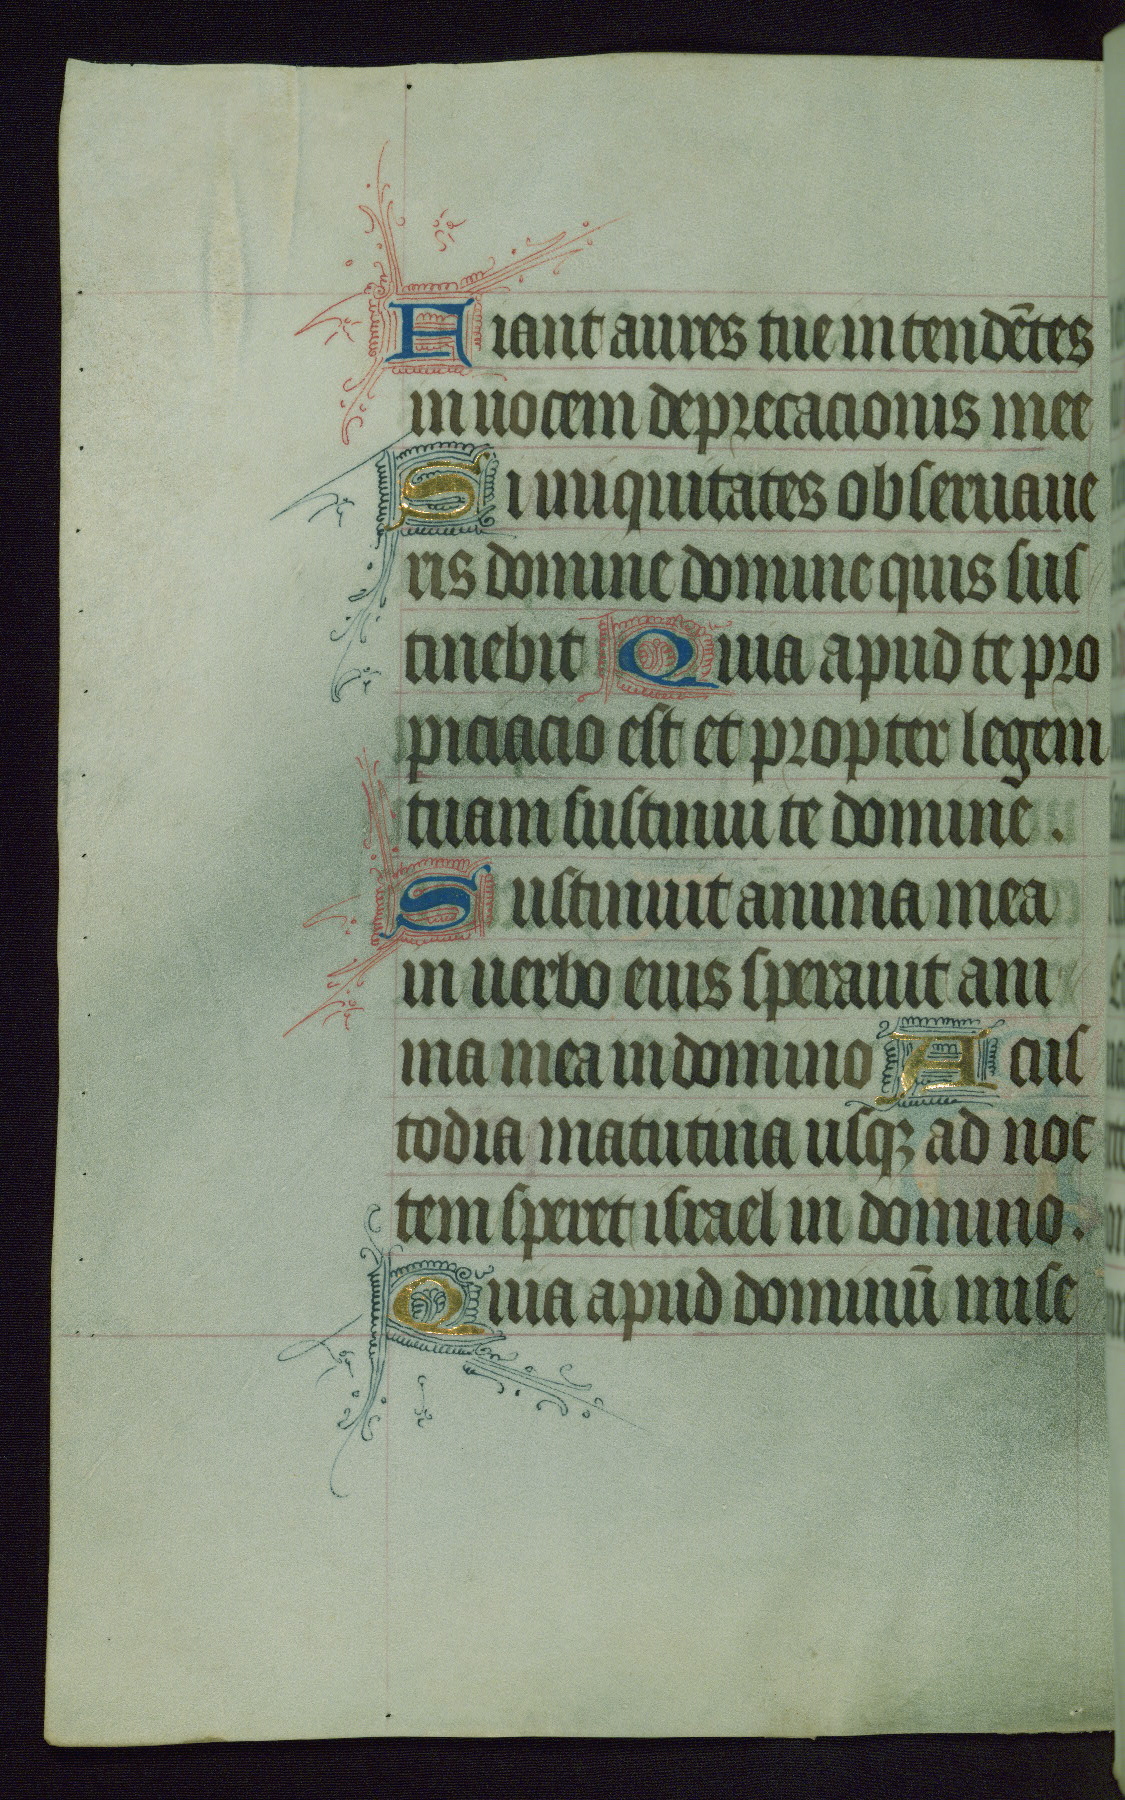 Fiant aures tue intendētes
in uocem deprecacionis mee
Si iniquitates obseruaue
ris domine domine quis sus
tinebit Quia apud te pro
piciacio est et propter legem
tuam sustinui te domine .
Sustinuit anima mea
in uerbo eius sperauit ani
ma mea in domino A cus
todia matutina usqꝫ ad noc
tem speret israel in domino .
Quia apud dominū mise